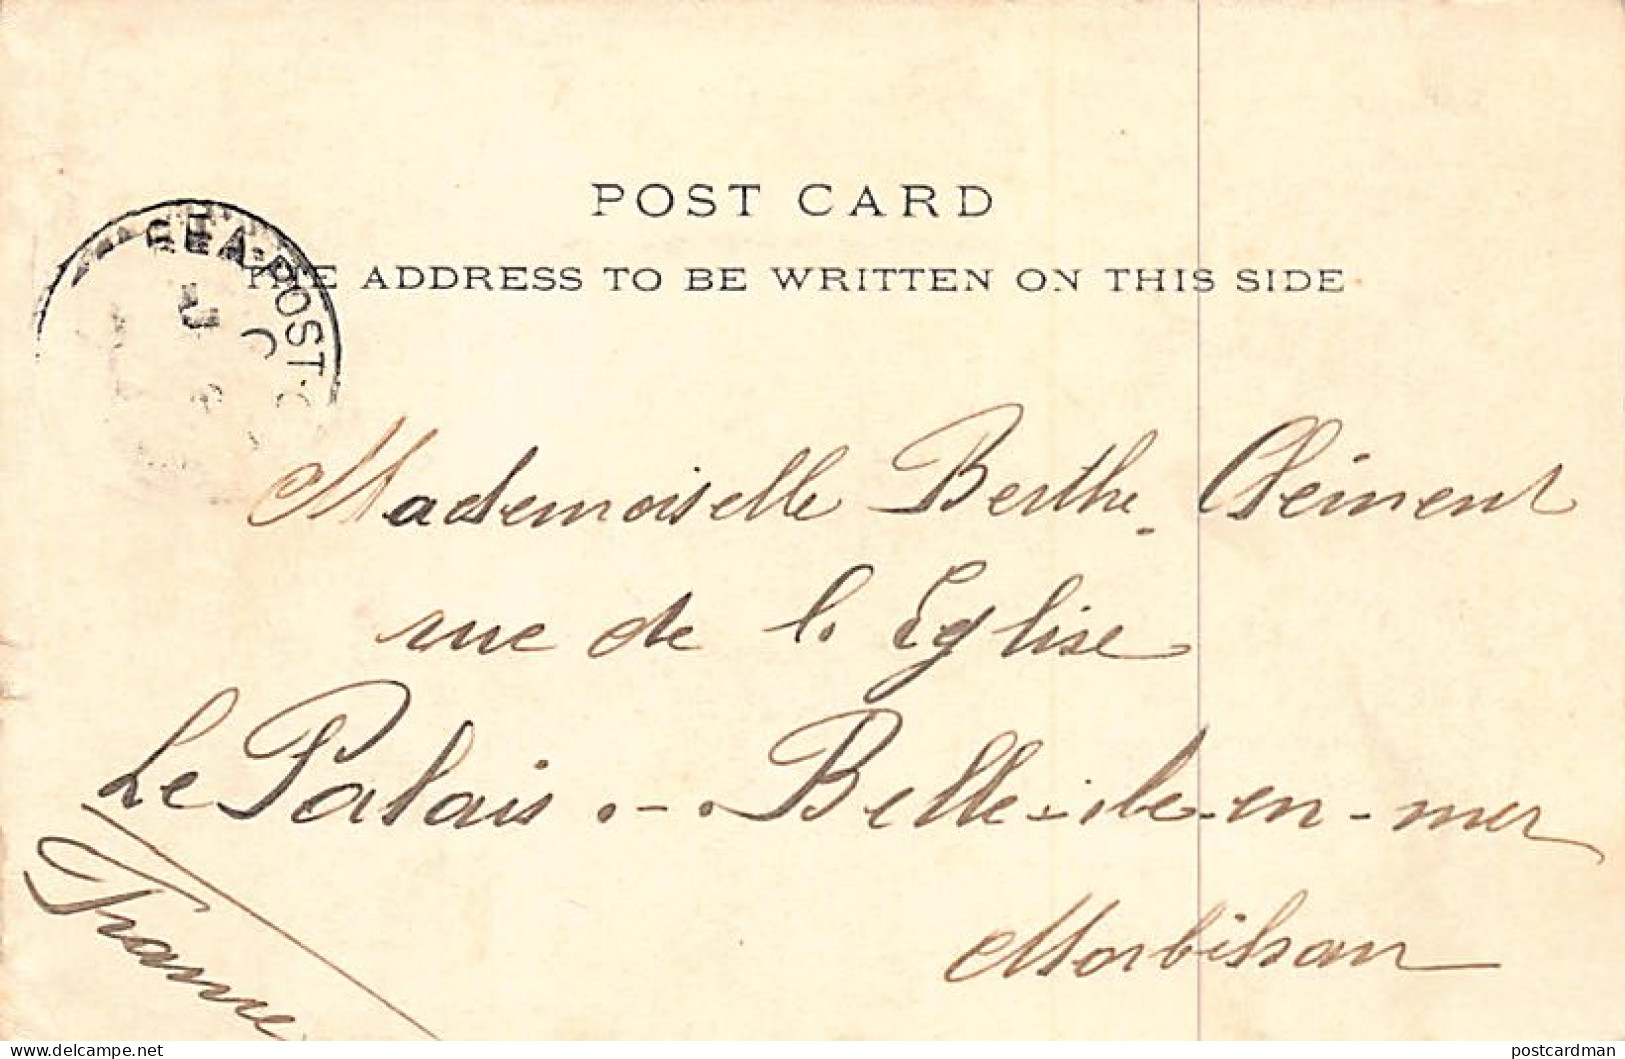 POST CARD
THE ADDRESS TO BE WRITTEN ON THIS SIDE
SEA POST
Mademoiselle Berthe Clément
rue de l'Eglise
Le Palais .-. Belle-ile-en-mer
Morbihan
France
www.delcampe.net
postcardman